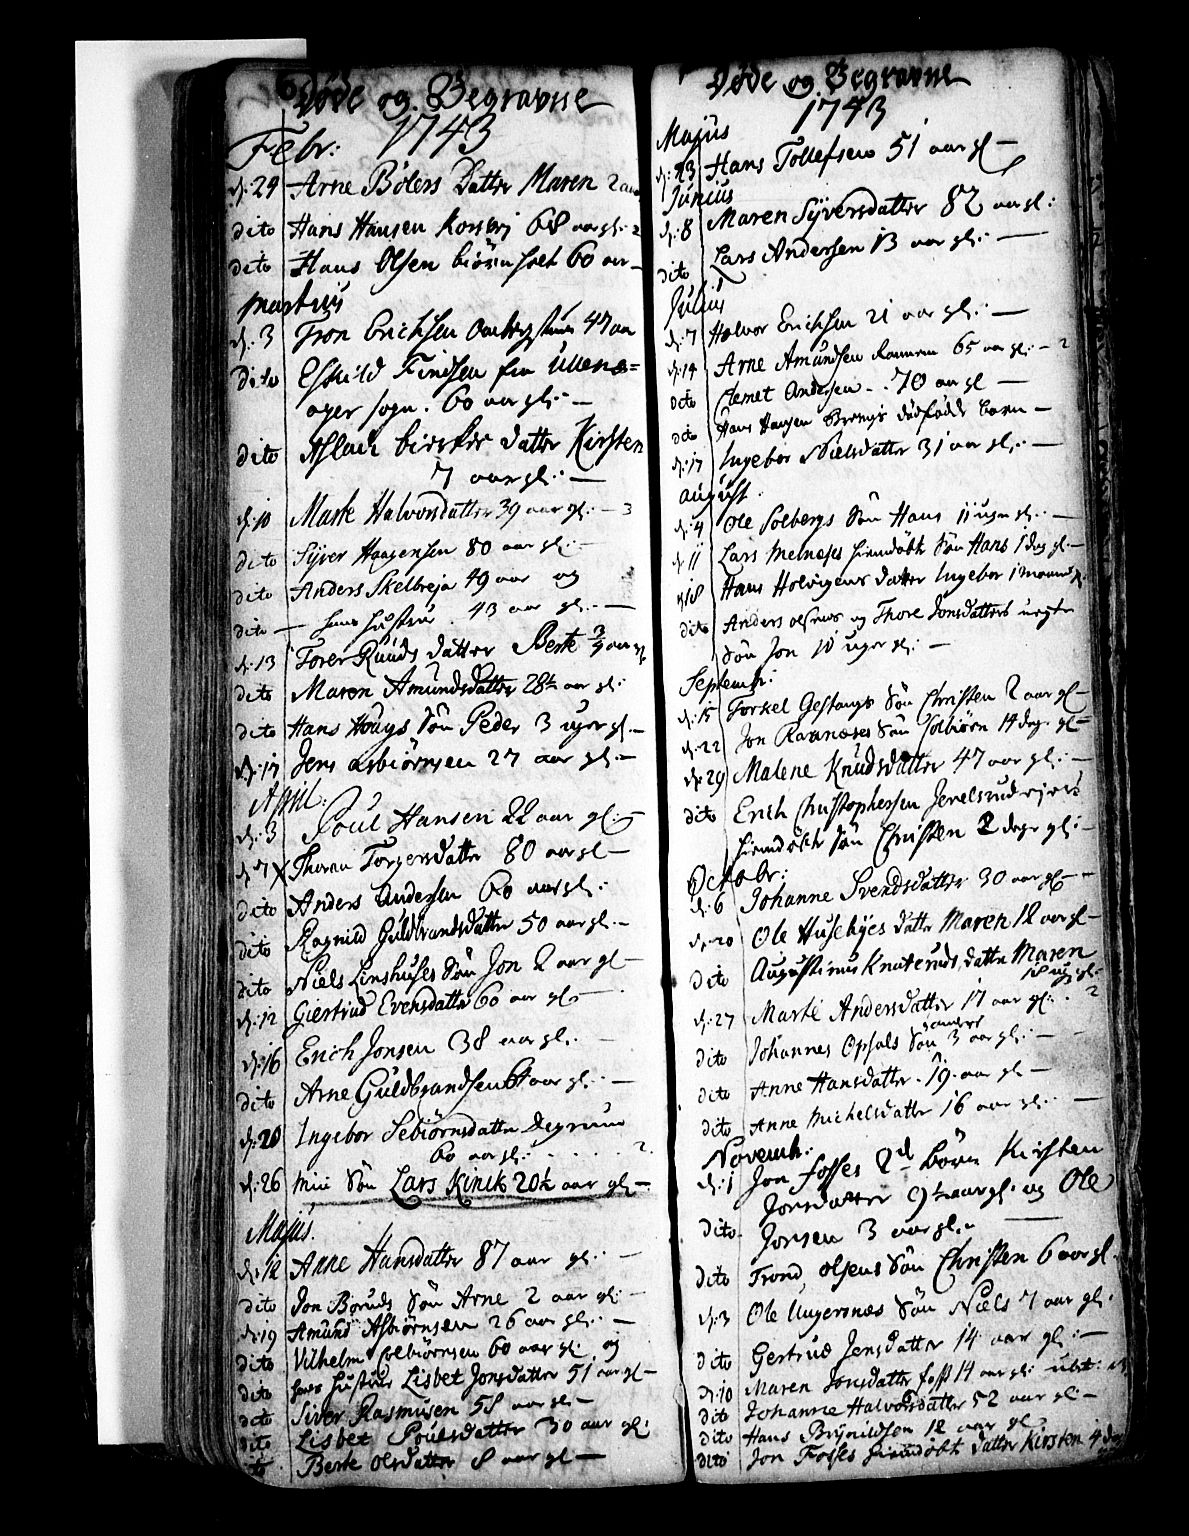 Døde og Begravne
1743
Febr:
d: 24 Arne Bølers Datter Maren 2 aar
dito Hans Hansen Korsvej 68 aar gl: 2
dito Hans Olsen biörnholt 60 aar
Martius
d: 3 Tron Erichsen 47 aar
dito Eskild Findsen fra Ullens=
ager sogn. 60 aar gl: —
dito Aslack bierkes datter Kirsten
7 aar gl: —
d: 10 Marte Halvorsdatter 39 aar gl: — 3
dito Syver Haagensen 80 aar gl: —
dito Anders Skelbreja 49 aar og
dito — hans hustru . 43 aar gl: —
d: 13 Torer Ruuds datter Berte 3/4 aar gl
dito Maren Amundsdatter 28½ aar gl:
dito Hans Hougs Sön Peder 3 uger gl. —
d: 17 Jens Asbiörnsen 27 aar gl: —
April:
d: 3 Poul Hansen 22 aar gl: —
d: 7 X Thoren Torgersdatter 80 aar gl —
dito Anders Andersen 60 aar gl:
dito Ragnild Guldbrandsdatter 50 aar gl: —
dito Niels Linshuses Sön Jon 2 aar gl —
d: 12 Giertrud Evensdatter 60 aar gl: —
d: 16 Erich Jonsen 38 aar gl: —
dito Arne Guldbrandsen aar gl: —
d: 20 Ingebor Sebiörnsdatter Degrum
60 aar gl: . . . . . 2
d: 26 min Sön Lars Kinck 20½ aar gl: —
Majus.
d: 12 Anne Hansdatter 87 aar gl: —
dito Jon Boruds Sön Arne 2 aar gl: —
d: 19 Amund Asbiörnsen 26 aar gl: —
dito Vilhelm Colbiörnsen 60 aar gl: og
dito hans hustrue Lisbet Jonsdatter 51 aar gl —
dito Siver Rasmusen 58 aar gl: —
dito Lisbet Poulsdatter 30 aar gl:
dito Berte Olsdatter 8 aar gl: —
Døde og Begravne
1743
Majus
d: 23 Hans Tollefsen 51 aar gl —
Junius
d: 8 Maren Syversdatter 82 aar gl:
dito Lars Andersen 13 aar gl: —
Julius
d: 7 Halvor Erichsen 21 aar gl: —
d: 14 Arne Amundsen 65 aar gl: — 2
dito Clemet Andersen . . 70 aar gl —
dito Hans Hansen dødfødde barn —
d: 17 Ingebor Nielsdatter 31 aar gl: —
August.
d: 4 Ole Solbergs Sön Hans 11 uger gl: —
d: 11 Lars Melneses hiemdöbt Sön Hans 1 dag gl —
d: 18 Hans Holvigens datter Ingebor 1 maaned gl
dito Anders olsens og Thore Jonsdatters uegte
Sön Jon 10 uger gl: —
Septembr:
d: 15 Torkel Gestangs Sön Christen 2 aar gl —
d: 22 Jon Ravnæses Sön Colbiörn 14 dage gl —
d: 29 Malene Knudsdatter 47 aar gl: —
dito Erich Christophersen Jevelsrud ejers
hiemdöbt Sön Christen 2 dage gl: —
Octobr:
d: 6 Johanne Svendsdatter 30 aar gl —
d: 20 Ole Husebyes datter Maren 12 aar gl —
dito Augustinus Knaterud datter Maren
18 ug gl:
d: 27 Marte Andersdatter 17 aar gl: . 2
dito Johannes Opsals Sön 3 aar gl: —
dito Anne Hansdatter . 19 . aar gl —
dito Anne Michelsdatter 16 aar gl: —
Novemb:
d: 1 Jon fosses 2de börn Kirsten
Jonsdatter 9½ aar gl: og Ole
dito Jonsen 3 aar gl: —
dito Trond olsens Sön Christen 6 aar gl.
d: 3 Ole Ungersnæs Sön Niels 7 aar gl:
dito Gertrud Jensdatter 14 aar gl: —
d: 10 Maren Jonsdatter foss 14 aar gl:
dito Johanne Halvorsdatter 52 aar gl: —
dito Hans Brynildsen 12 aar gl:
dito Jon Fosses hiemdöbt datter Kirsten 4 dag